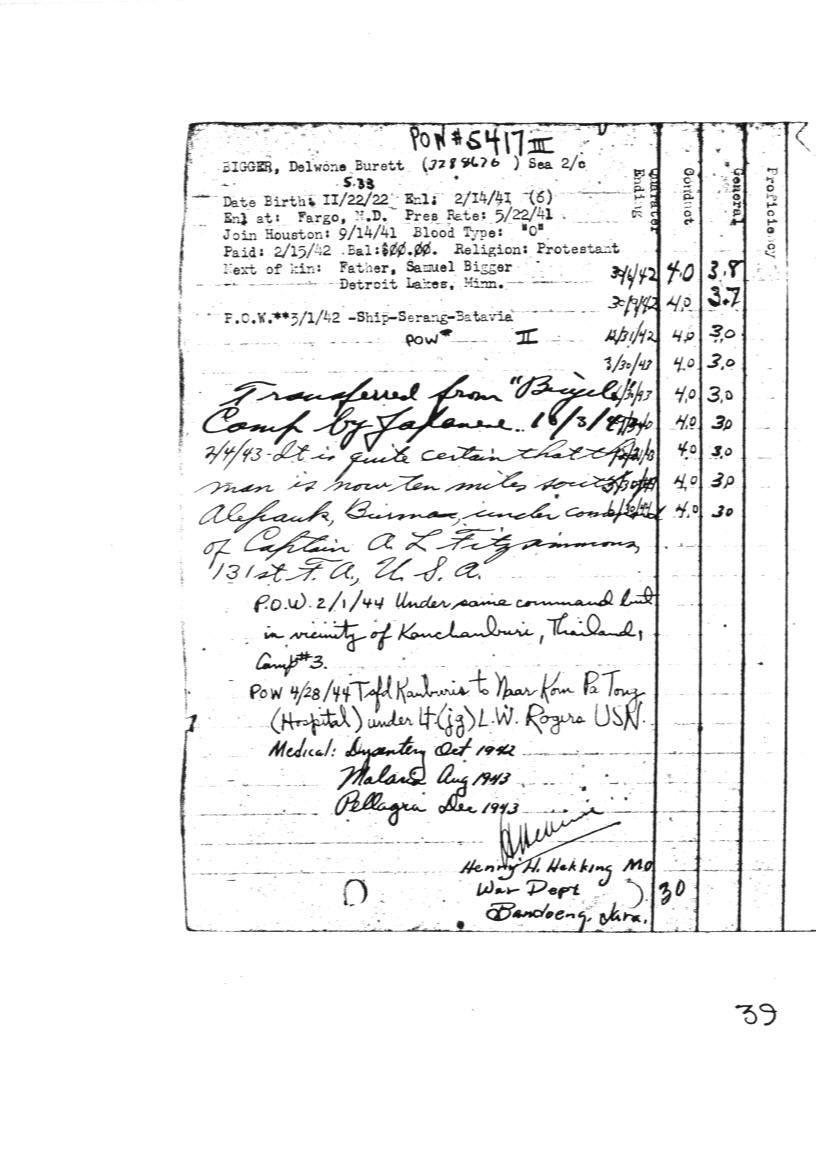 POW #5417 III
BIGGER, Delwone Burett (3288626) Sea 2/c
5.33
Date Birth: II/22/22 Enl: 2/14/41 (6)
Enl at: Fargo, N.D. Pres Rate: 5/22/41
Join Houston: 9/14/41 Blood Type: "O"
Paid: 2/15/42 Bal:$00.00. Religion: Protestant
Next of kin: Father, Samuel Bigger
Detroit Lakes, Minn.
P.O.W.**3/1/42 -Ship-Serang-Batavia
POW# II
Quarter Ending Conduct General Proficiency
4.0 3.8
4.0 3.7
12/31/42 4.0 3.0
3/30/43 4.0 3.0
4.0 3.0
4.0 30
4.0 3.0
4.0 30
4.0 30
Transferred from "Bicycle"
Camp by Japanese
2/4/43- It is quite certain that this
man is now ten miles south of
Alepauk, Burma, under command
of Captain A L Fitzsimmons,
131st F.A., U.S.A.
P.O.W. 2/1/44 Under same command but
in vicinity of Kanchanburi, Thailand,
Camp #3.
POW 4/28/44 Tsfd Kanburie to Near Kom Pa Tong
(Hospital) under Lt (jg) L.W. Rogers USN.
Medical: Dysentery Oct 1942
Malaria Aug 1943
Pellagra Dec 1943
Henry H. Hekking MD
War Dept
Bandoeng, Java.
30
39